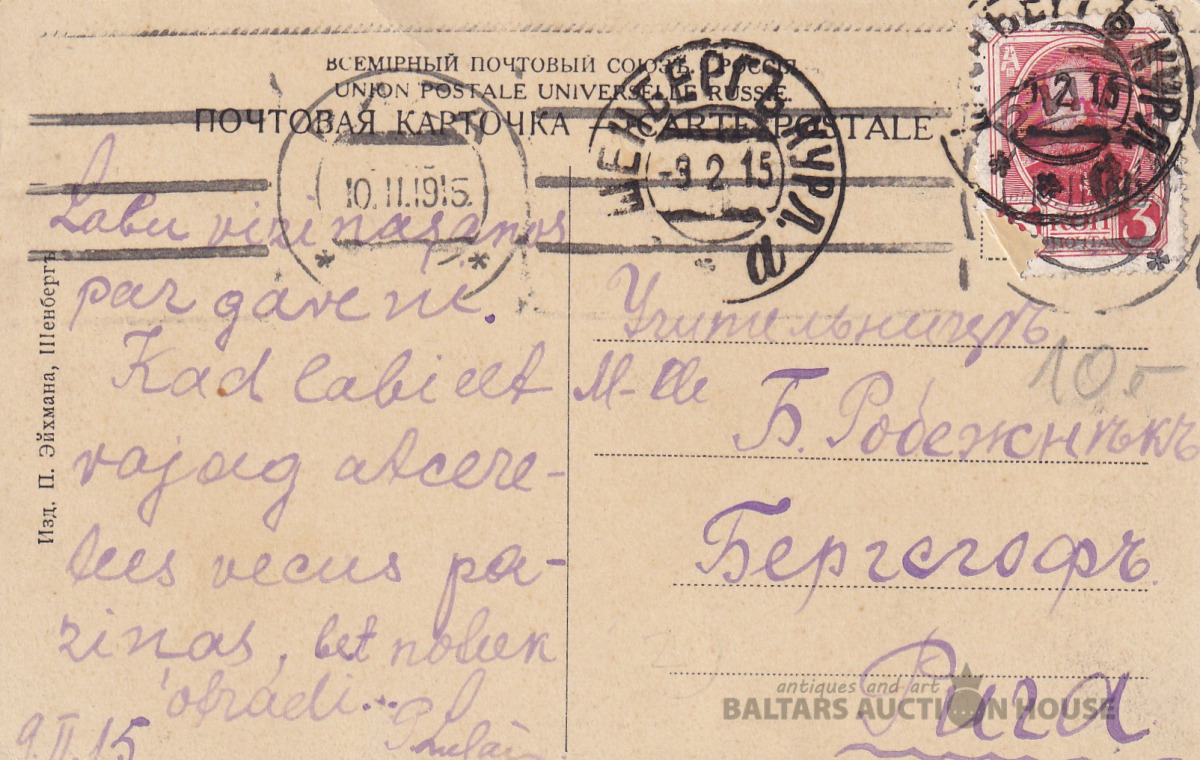 ВСЕМІРНЫЙ ПОЧТОВЫЙ СОЮЗЪ. РОССІЯ
UNION POSTALE UNIVERSELLE RUSSIE.
ПОЧТОВАЯ КАРТОЧКА — CARTE POSTALE
10.II.1915.
ШЕНБЕРГЪ КУРЛ.
-9 2 15
а
2 15
КУРЛ
3
КОП
ПОЧТА
Изд. П. Эйхмана, Шенбергъ
Labu vizinašanos
par gaveni.
Kad labi eet
vajag atcere-
tees vecus pa-
zinas, bet noteek
otradi...
9.II.15
Учительницѣ
M-lle Б. Робежнѣкъ
10.-
Бергсгофъ.
Рига
antiques and art
BALTARS AUCTION HOUSE